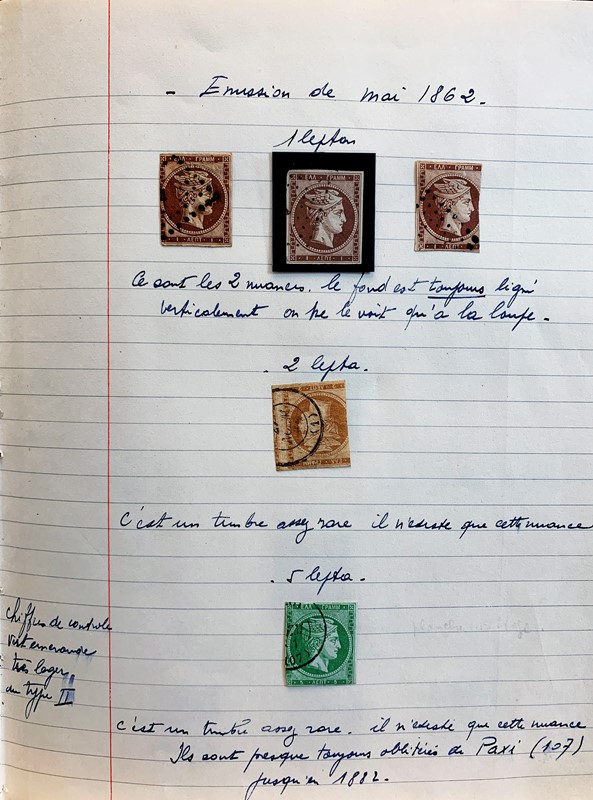 - Emission de mai 1862.
1 lepton
ΕΛΛ ΓΡΑΜΜ
ΕΛΛ ΓΡΑΜΜ
ΕΛΛ ΓΡΑΜΜ
1 ΛΕΠΤ 1
1 ΛΕΠΤ 1
1 ΛΕΠΤ 1
Ce sont les 2 nuances. le fond est toujours ligné
verticalement on ne le voit qu'à la loupe.
. 2 lepta.
C'est un timbre assez rare il n'existe que cette nuance
. 5 lepta.
ΕΛΛ ΓΡΑΜΜ
5 ΛΕΠΤ 5
Chiffres de controle
vert emeraude
très leger
du type II
C'est un timbre assez rare. il n'existe que cette nuance
Ils sont presque toujours oblitérés de Paxi (107)
jusqu'en 1882.